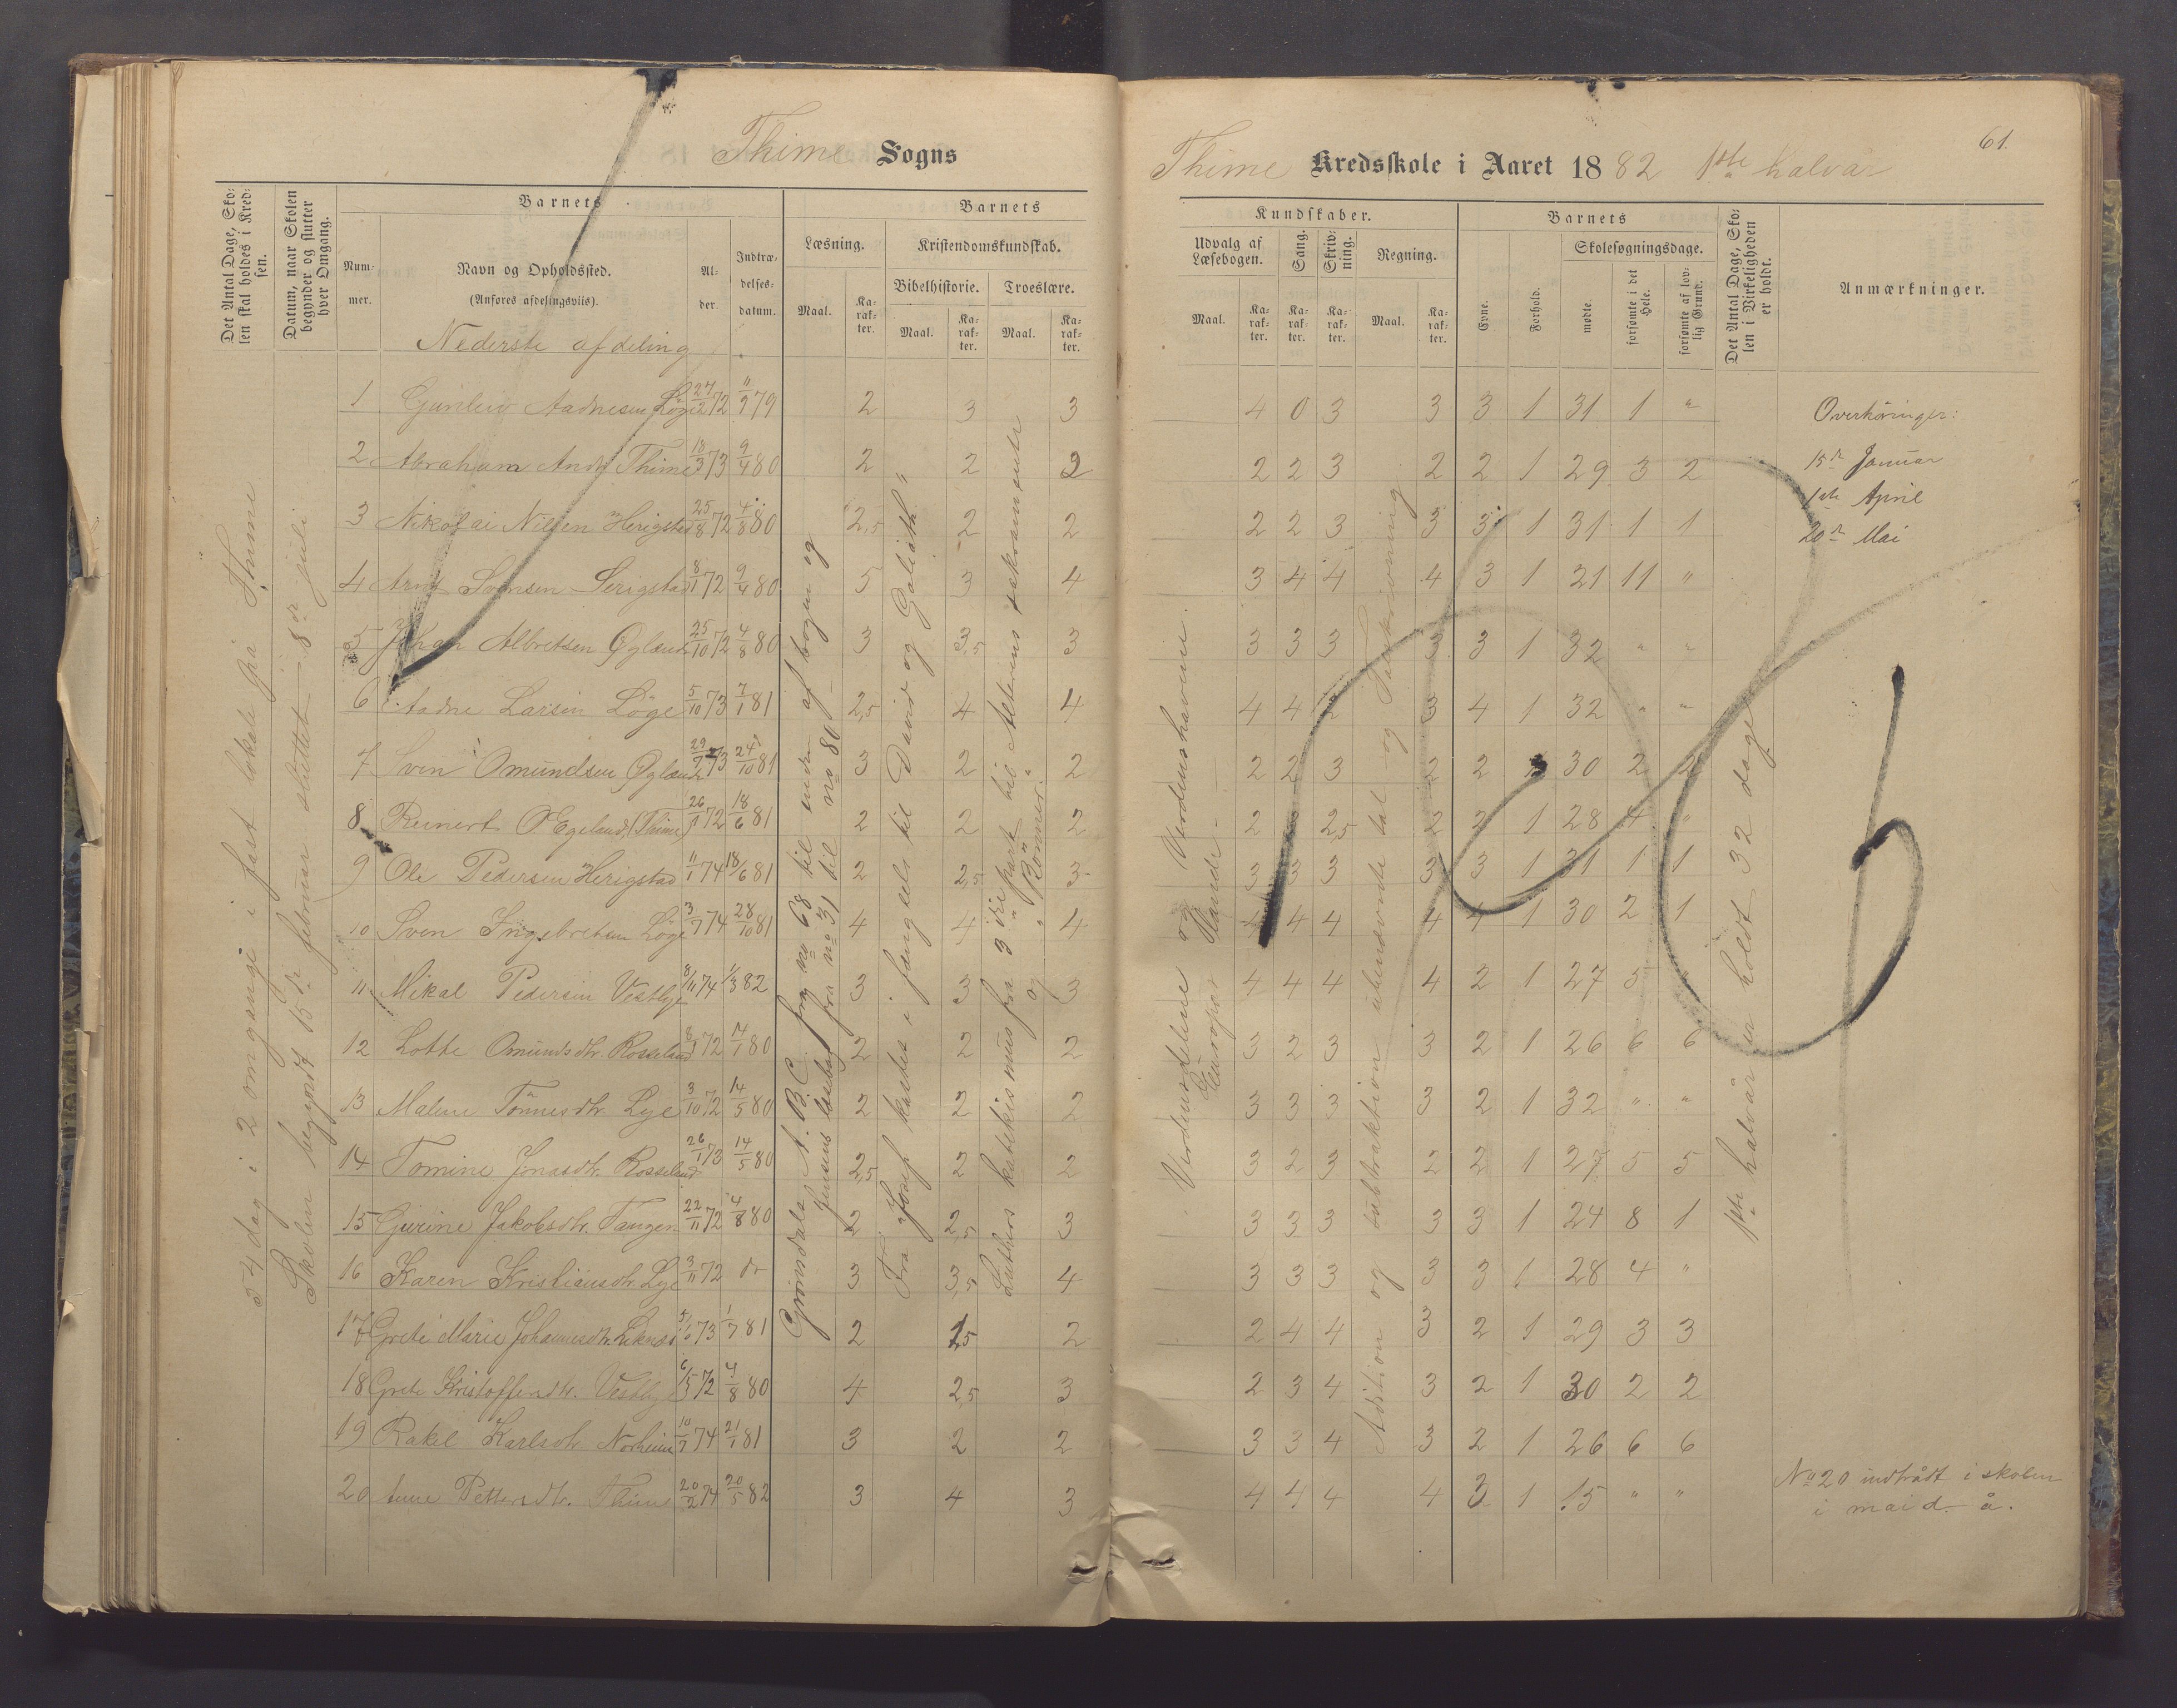 61.
Thime Sogns
Thime Kredsskole i Aaret 1882 1ste halvår
Det Antal Dage, Skolen skal holdes i Kredsen.
Datum, naar Skolen begynder og slutter hver Omgang.
Barnets
Nummer.
Navn og Opholdssted.
(Anføres afdelingsviis).
Alder.
Indtrædelsesdatum.
Barnets
Læsning.
Maal.
Karakter.
Kristendomskundskab.
Bibelhistorie.
Maal.
Karakter.
Troeslære.
Maal.
Karakter.
Kundskaber.
Udvalg af Læsebogen.
Maal.
Karakter.
Sang.
Karakter.
Skrivning.
Karakter.
Regning.
Maal.
Karakter.
Barnets
Evne.
Forhold.
Skolesøgningsdage.
mødte.
forsømte i det Hele.
forsømte af lovlig Grund.
Det Antal Dage, Skolen i Virkeligheden er holdt.
Anmærkninger.
Nederste afdeling
34 dag i 2 omgange i fast lokale på Thime
Skolen begyndt 15de februar sluttet 8de juli
Grönsdals A.B.C. fra no 68 til enden af bogen og
Jensens læsebog fra no 31 til no 80
Fra Josef kastes i fængsels til David og Goliath."
Luthers katekismus fra 3die part til Alterens sakramente
og "Bönner"
Verdensdelene og Verdenshavene.
Europas Lande
Adition og subtraktion ubenævnte tal og Talskrivning
1ste halvår er holdt 32 dage
1 Gunleiv Aadnesen Löge 24/2 72 11/9 79 2 3 3 4 0 3 3 3 1 31 1 "
2 Abraham Ands. Thime 18/3 73 9/4 80 2 2 2 2 2 3 2 2 1 29 3 2
3 Nikolai Nilsen Herigstad 25/8 72 4/8 80 2,5 2 2 2 2 3 3 3 1 31 1 1
4 Arnt Svensen Serigstad 8/1 72 9/4 80 5 3 4 3 4 4 4 3 1 21 11 "
5 Johan Albretsen Ögland 25/10 72 4/8 80 3 3,5 3 3 3 3 3 3 1 32 " "
6 Aadne Larsen Löge 5/10 73 7/1 81 2,5 4 4 4 4 2 3 4 1 32 " "
7 Sven Omundsen Ögland 29/7 73 24/10 81 3 2 2 2 2 3 2 2 1 30 2 2
8 Reinert O Egeland (Thime) 26/1 72 18/6 81 2 2 2 2 2,5 2 2 1 28 4 "
9 Ole Pedersen Herigstad 11/1 74 18/6 81 2 2,5 3 3 3 3 3 3 1 31 1 1
10 Sven Ingebretsen Löge 3/7 74 28/10 81 4 4 4 4 4 4 4 4 1 30 2 1
11 Mikal Pedersen Vestlye 8/11 74 1/3 82 3 3 3 4 4 4 4 2 1 27 5 "
12 Lotte Omundsdtr. Rosseland 8/1 72 14/1 80 2 2 2 3 2 3 3 2 1 26 6 6
13 Malene Tönnesdtr. Lye 3/10 72 14/5 80 2 2 2 3 3 3 3 2 1 32 " "
14 Tomine Jonasdtr. Rosseland 26/1 73 14/5 80 2,5 2 2 3 2 3 2 2 1 27 5 5
15 Gurine Jakobsdtr. Tangen 22/11 72 4/8 80 2 2,5 3 3 3 3 3 3 1 24 8 1
16 Karen Kristiansdtr. Lye 3/11 72 do 3 3,5 4 3 3 3 3 3 1 28 4 "
17 Grete Marie Johannesdtr. 73 1/7 81 2 1,5 2 2 4 4 3 2 1 29 3 3
18 Grete Kristoffersdtr. Vestlye 6/5 72 4/8 80 4 2,5 3 2 3 4 3 2 1 30 2 2
19 Rakel Karlsdtr. Norheim 10/7 74 21/1 81 3 2 2 3 3 4 3 2 1 26 6 6
20 Anne Pettersdtr. Thime 20/2 74 20/5 82 3 4 3 4 4 4 4 3 1 15 " "
Overhöringer:
15de Januar
1ste April
20de Mai
No 20 indtrådt i skolen
i mai d. å.